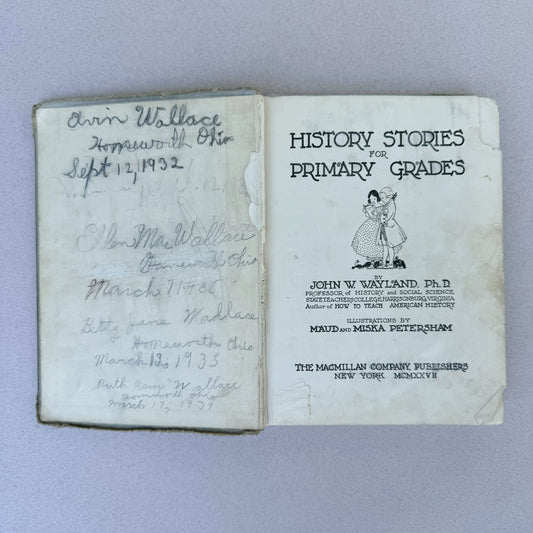 Orin Wallace
Homeworth Ohio
Sept 12, 1932
Ellen Mae Wallace
Homeworth Ohio
March 7 1936
Betty Jane Wallace
Homeworth Ohio
March 13, 1935
Ruth Ann Wallace
homeworth ohio
march 17, 1939
HISTORY STORIES
FOR
PRIMARY GRADES
BY
JOHN W. WAYLAND, Ph.D.
PROFESSOR, OF HISTORY AND SOCIAL SCIENCE,
STATE TEACHERS COLLEGE, HARRISONBURG, VIRGINIA
Author of HOW TO TEACH AMERICAN HISTORY
ILLUSTRATIONS BY
MAUD AND MISKA PETERSHAM
THE MACMILLAN COMPANY, PUBLISHERS
NEW YORK MCMXXVII